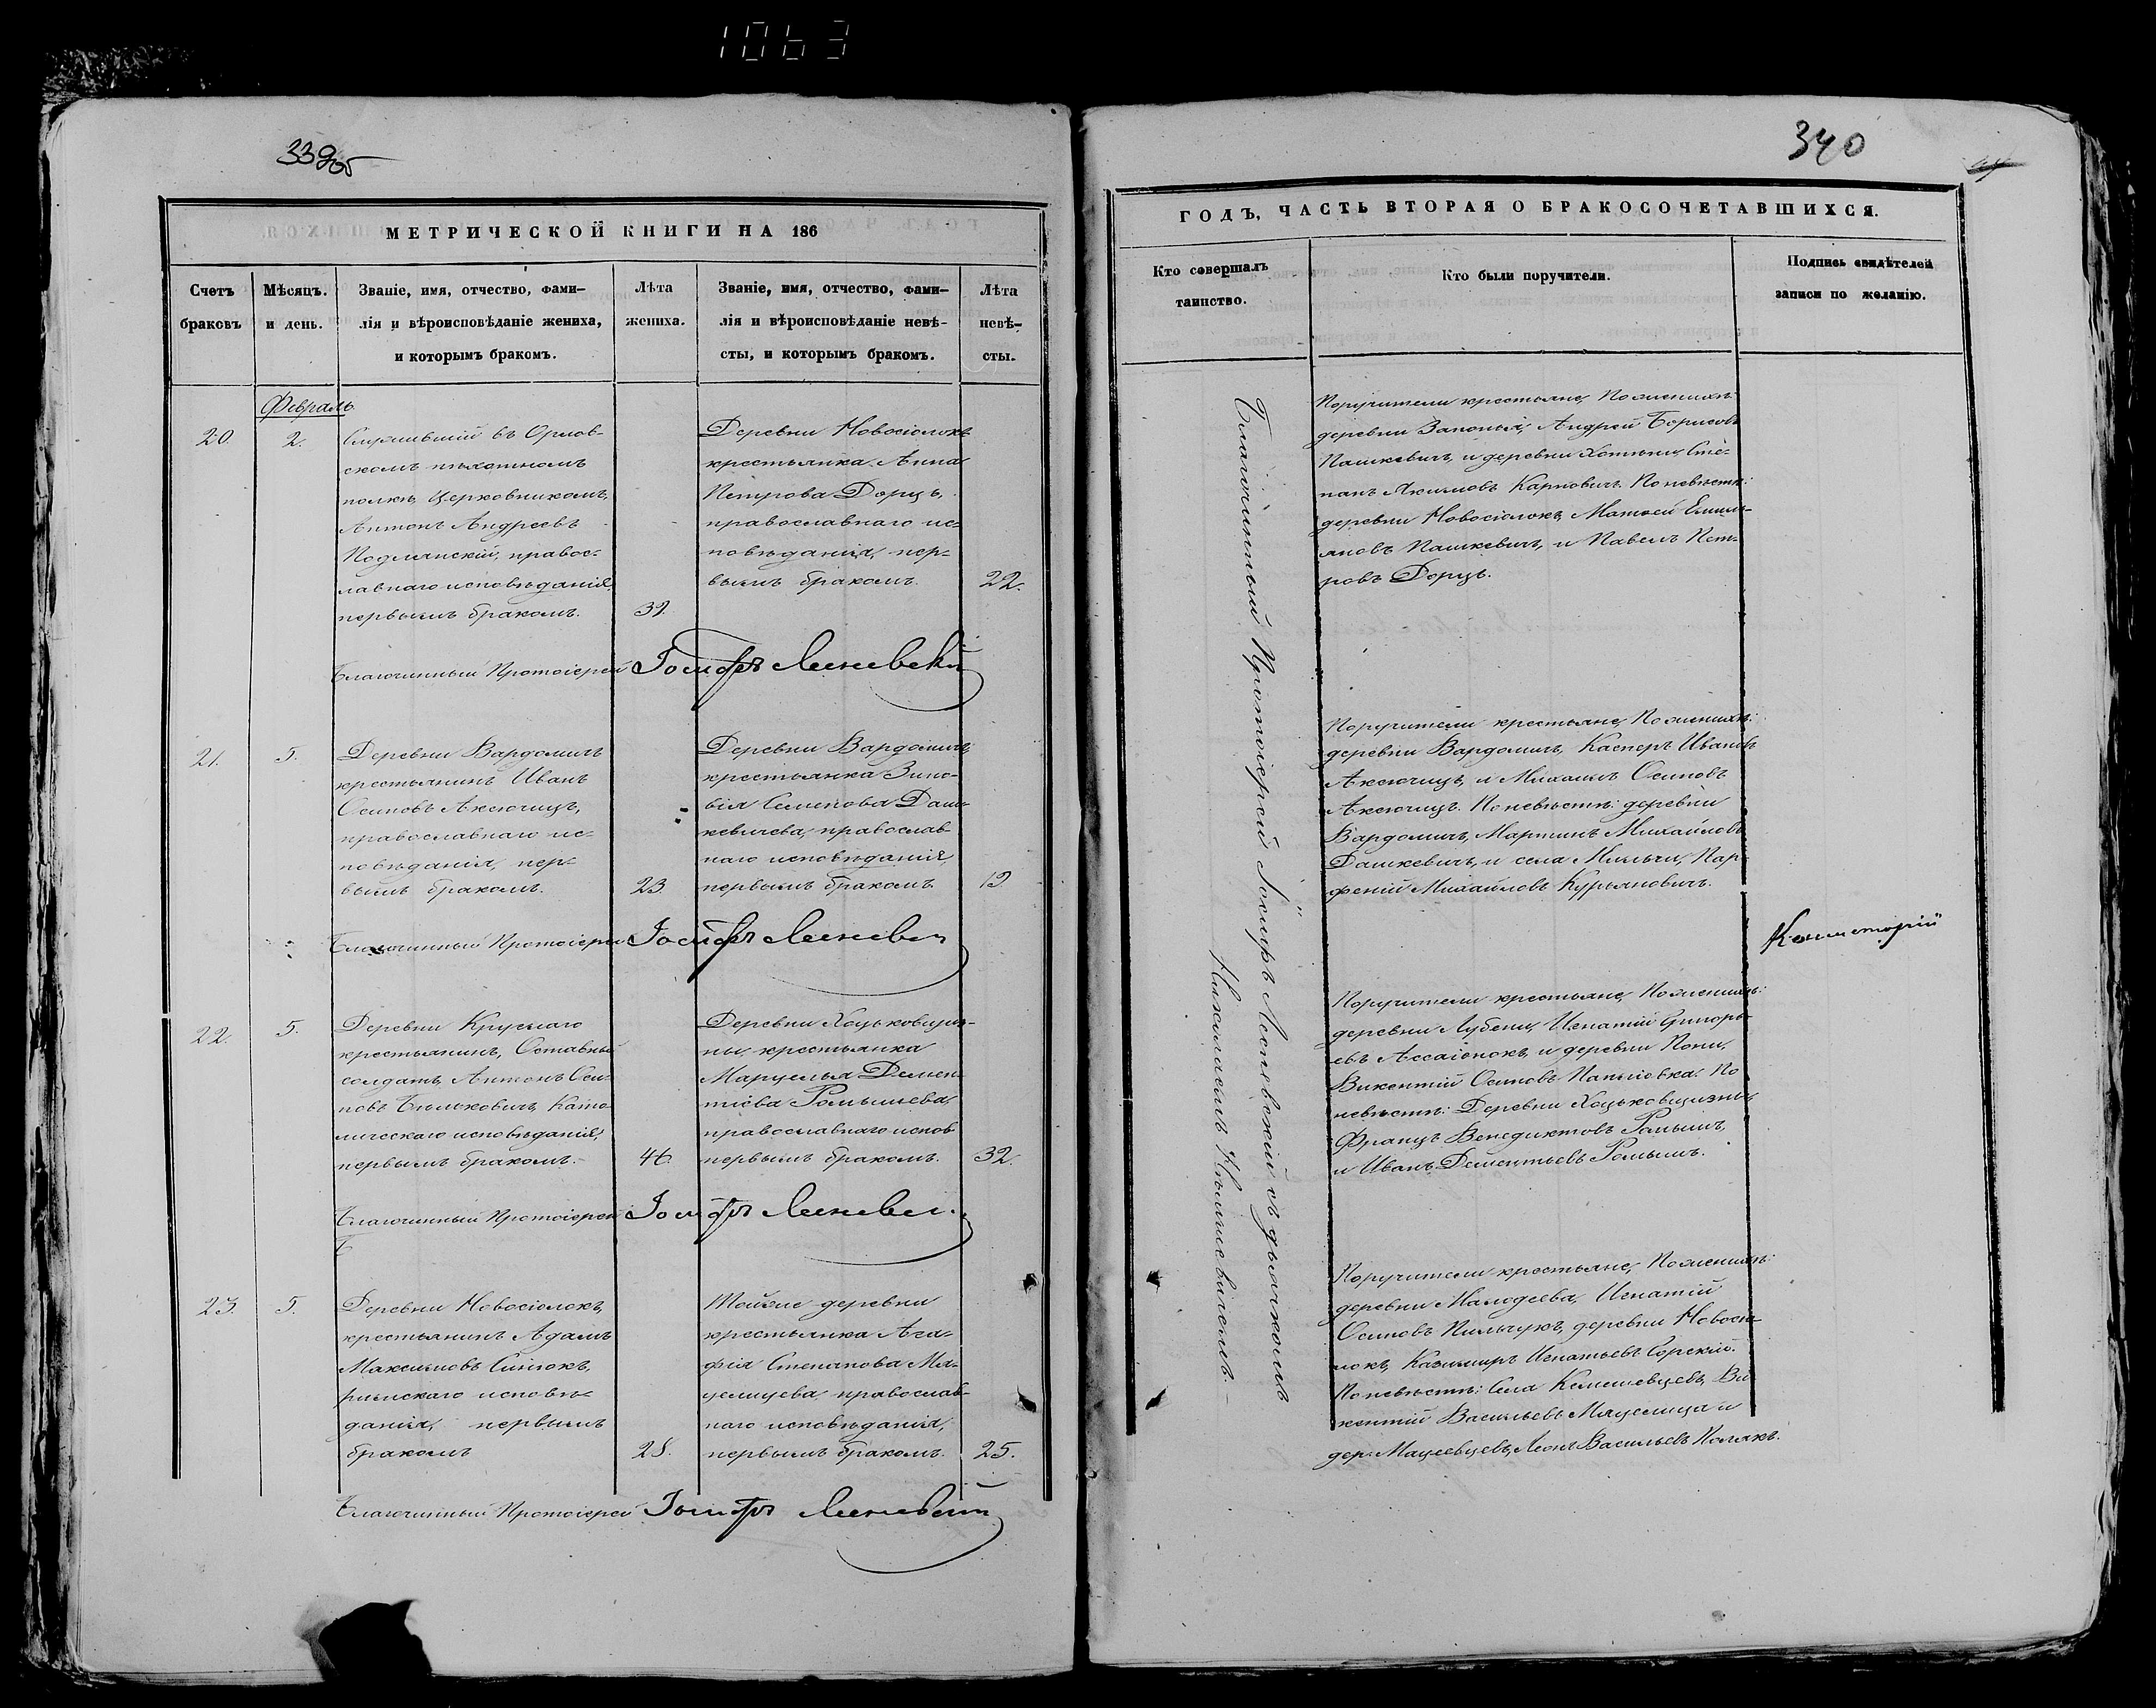 1063
339об
МЕТРИЧЕСКОЙ КНИГИ НА 186
Счетъ
браковъ
Мѣсяцъ.
и день.
Званіе, имя, отчество, фами-
лія и вѣроисповѣданіе жениха,
и которымъ бракомъ.
Лѣта
жениха.
Званіе, имя, отчество, фами-
лія и вѣроисповѣданіе невѣ-
сты, и которымъ бракомъ.
Лѣта
невѣ-
сты.
Февраль
20.
2.
Служившій въ Орлов-
скомъ пѣхотномъ
полку церковникомъ,
Антонъ Андреевъ
Подлинскій, правос-
лавнаго исповѣданія,
первымъ бракомъ.
Деревни Новосіолокъ
крестьянка Анна
Петрова Дорцъ,
православнаго ис-
повѣданія, пер-
вымъ бракомъ.
22.
Благочинный Протоіерей Іосифъ
21.
5.
Деревни Вардомичъ
крестьянинъ Иванъ
Осиповъ Аксючицъ,
православнаго ис-
повѣданія, пер-
вымъ бракомъ.
23
Деревни Вардомичъ
крестьянка Зино-
вія Семенова Даш-
кевичева, православ-
наго исповѣданія,
первымъ бракомъ
19.
Благочинный Протоіерей Іосифъ
22.
5.
Деревни Круглаго
крестьянинъ, Отставный
солдатъ, Антонъ Оси-
повъ Бѣльковичъ, Като-
лическаго исповѣданія,
первымъ бракомъ.
46.
Деревни Хацьковщиз-
ны крестьянка
Марцелья Демен-
тіева
православнаго испов
первымъ бракомъ.
32.
Благочинный Протоіерей Іосифъ
23.
5.
Деревни Новосіолокъ,
крестьянинъ Адамъ
Максимовъ
римскаго исповѣ-
данія, первымъ
бракомъ
28.
Тойже деревни
крестьянка Ага-
фія Степанова Мя-
целицева, православ-
наго исповѣданія,
первымъ бракомъ.
25.
Благочинный Протоіерей Іосифъ
340
ГОДЪ, ЧАСТЬ ВТОРАЯ О БРАКОСОЧЕТАВШИХСЯ.
Кто совершалъ
таинство.
Кто были поручители.
Подпись свидѣтелей
записи по желанію.
Благочинный Протоіерей Іосифъ съ дьячкомъ
Поручители крестьяне, По женихѣ
деревни Андрей Борисовъ
Пашкевичъ, и деревни Хотѣнии Сте-
панъ Якимовъ Карповичъ. По невѣстѣ:
деревни Новосіолокъ, Матѳей Емиль-
яновъ Пашкевичъ, и Павелъ Пет-
ровъ Дорцъ.
Поручители крестьяне, По женихѣ:
деревни Вардомичъ, Касперъ Ивановъ
Аксючицъ, и Михаилъ Осиповъ
Аксючицъ. По невѣстѣ: деревни
Вардомичъ, Мартинъ Михайловъ
Дашкевичъ, и села Мильчи, Пар-
феній Михайловъ Курьяновичъ.
Консисторіи
Поручители крестьяне, По женихѣ:
деревни Лубени, Игнатій Григорь-
евъ и деревни
Викентій Осиповъ По
невѣстѣ: Деревни Хацьковщизны
Францъ Венедиктовъ
и Иванъ Дементьевъ
Поручители крестьяне, По женихѣ:
деревни Малодеева, Игнатій
Осиповъ Пильчукъ, деревни Новосіо-
локъ, Казимиръ Игнатьевъ Сорскій.
По невѣстѣ: Села Ви-
кентій Васильевъ Мяцелица и
дер: Мацеевцевъ, Леонъ Васильевъ